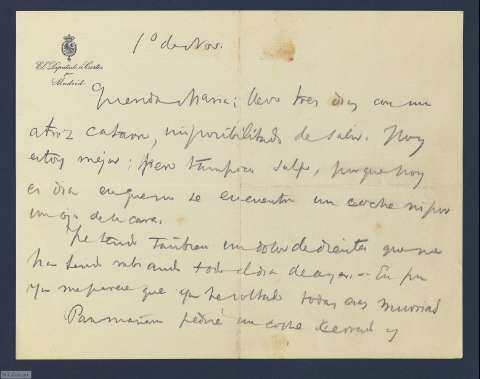 1º de Nov.
El Diputado a Cortes
por
Madrid
Querida María: llevo tres días con un
atroz catarro, imposibilitado de salir. Hoy
estoy mejor; pero tampoco salgo, porque hoy
es día en que no se encuentra un coche ni por
un ojo de la cara.
He tenido también un dolor de dientes que me
ha tenido rabiando todo el día de ayer. - En fin
ya me parece que ya he soltado todas esas murrias
Para mañana pediré un coche cerrado y